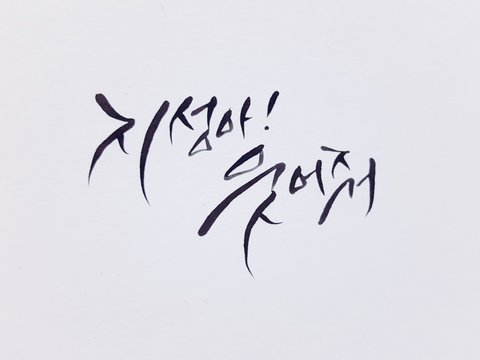 지섬아!
웃어줘